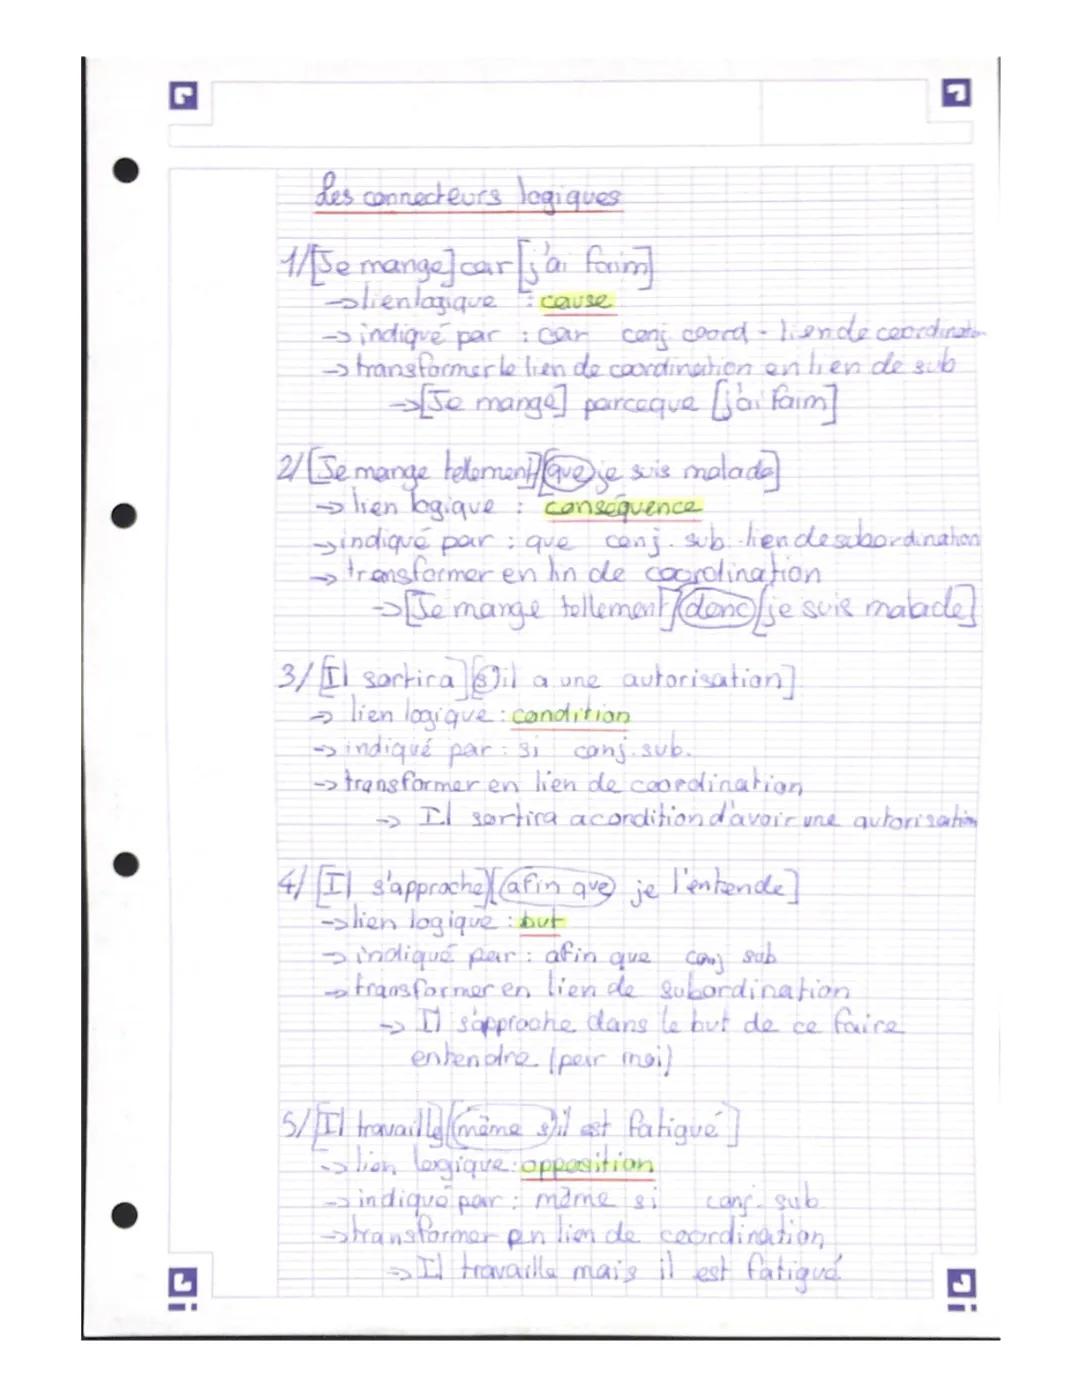 Les connecteurs logiques
1/ [Je mange] car [j'ai faim]
→ lien logique : cause
→ indiqué par : car conj coord - lien de coordination
→ transformer le lien de coordination en lien de sub
→ [Je mange] parceque [j'ai faim]
2/ [Je mange tellement] [que je suis malade]
→ lien logique : conséquence
→ indiqué par : que conj. sub. lien de subordination
→ transformer en lin de coordination
→ [Je mange tellement] donc [je suis malade]
3/ [Il sortira] [s'il a une autorisation]
→ lien logique : condition
→ indiqué par : si conj. sub.
→ transformer en lien de coordination
→ Il sortira a condition d'avoir une autorisation
4/ [Il s'approche] [afin que je l'entende]
→ lien logique : but
→ indiqué par : afin que conj sub
→ transformer en lien de subordination
→ Il s'approche dans le but de ce faire
entendre (par moi)
5/ [Il travaille] [même s'il est fatigué]
→ lien logique : opposition
→ indiqué par : même si conj. sub
→ transformer en lien de coordination
→ Il travaille mais il est fatigué